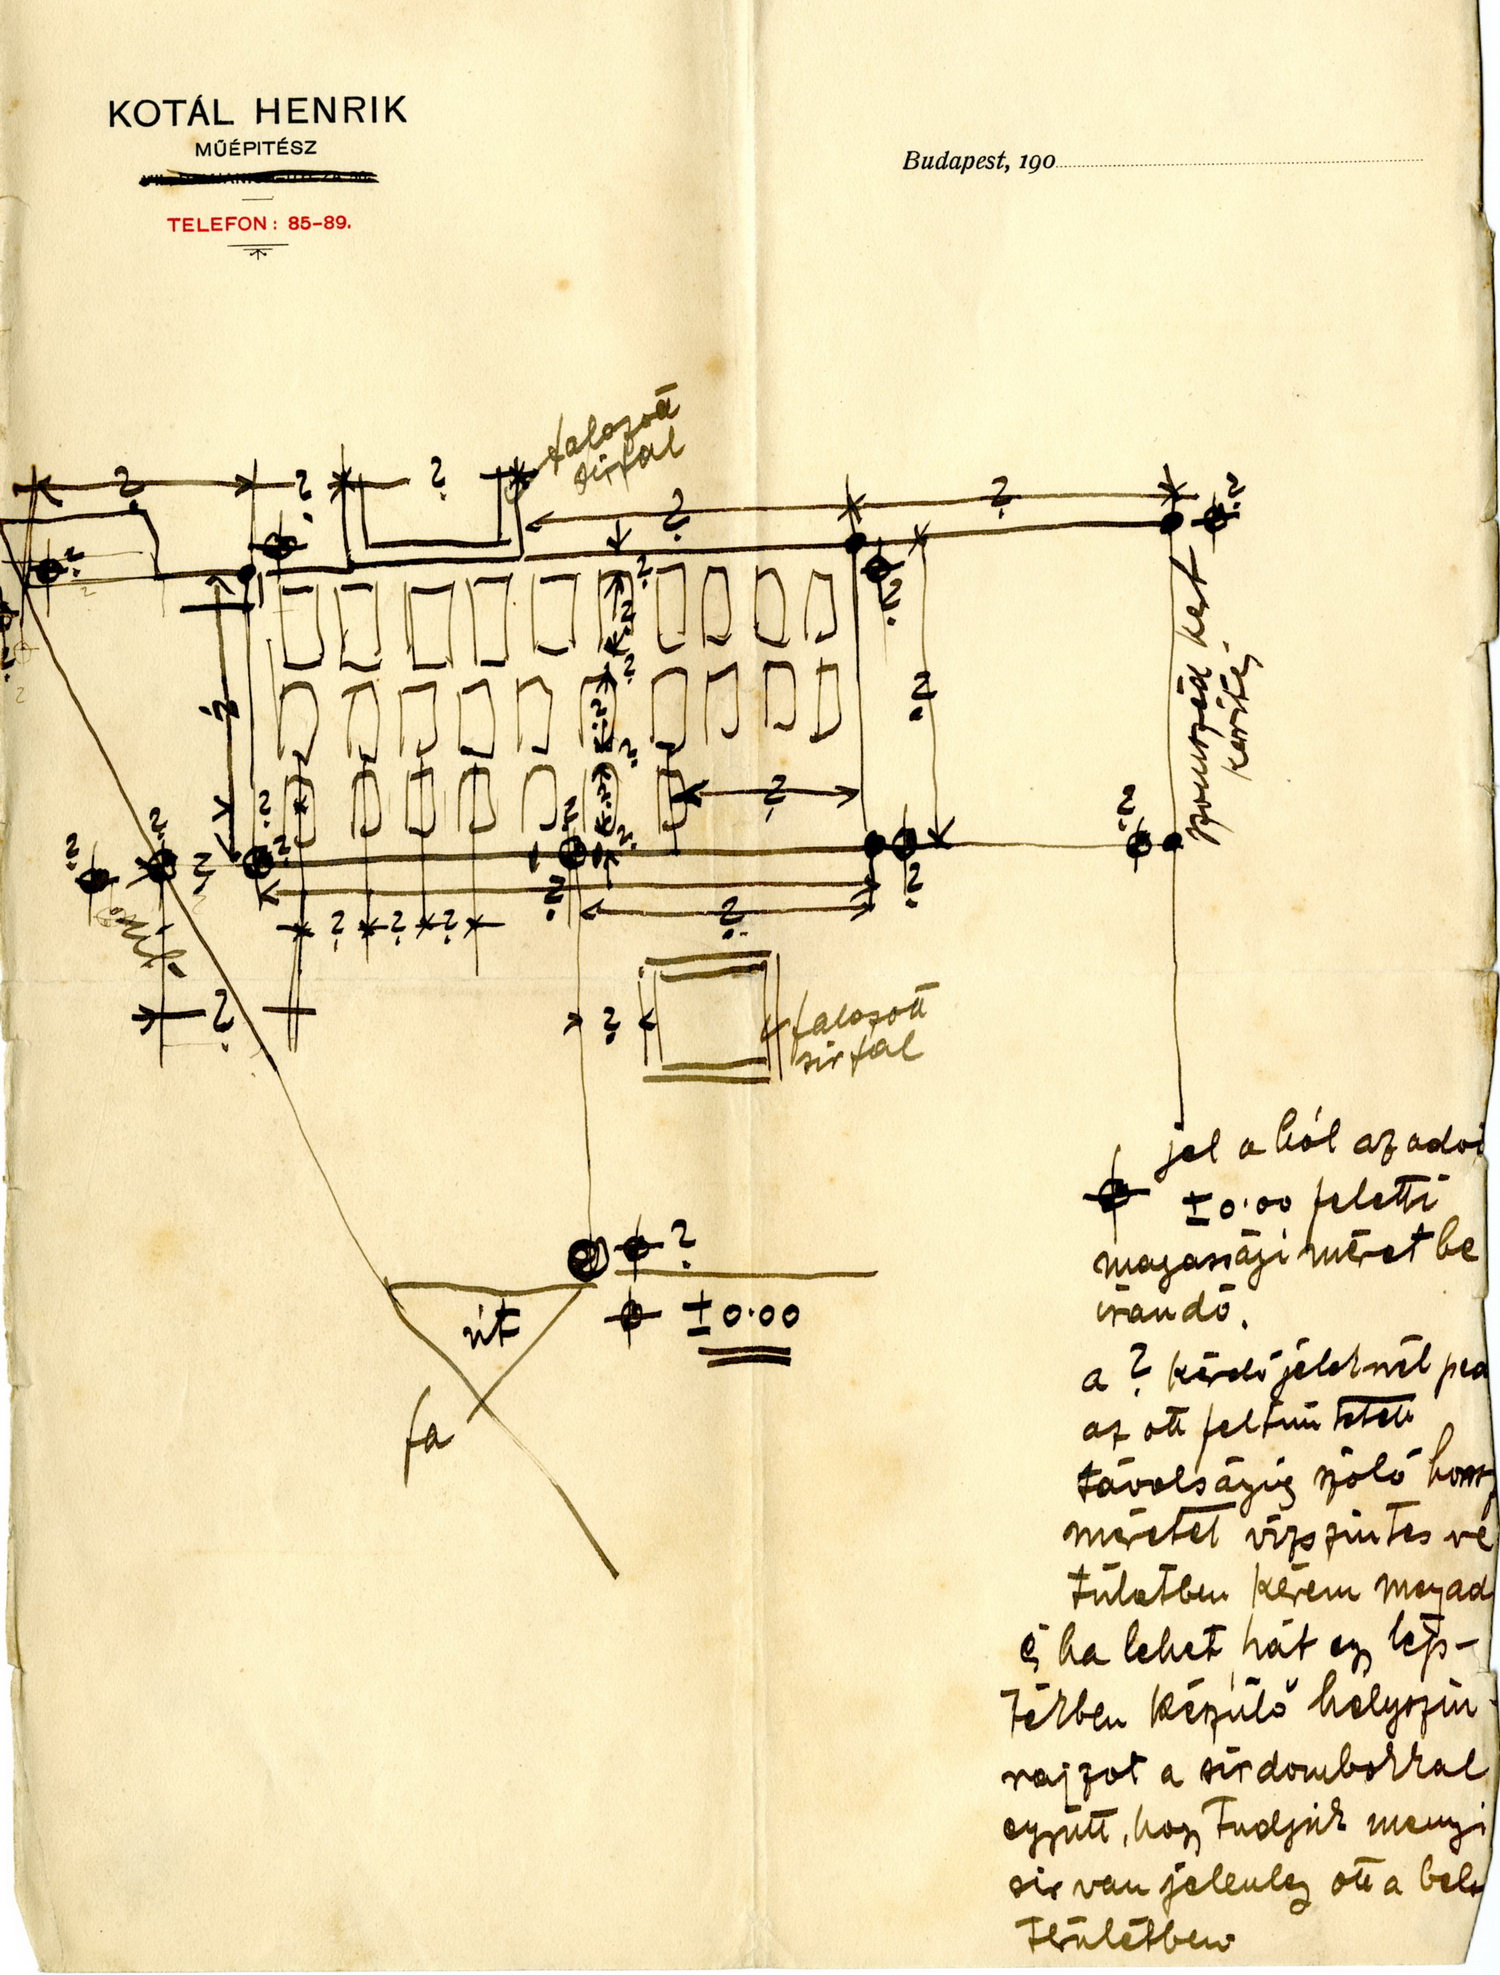 KOTÁL HENRIK
MŰÉPITÉSZ
TELEFON: 85-89.
Budapest, 190
falazott
sírfal
? ? ? ? ?
szomszéd kert
kerítés
falazott
sírfal
út
±0·00
fa
jel a hól az adói
±0·00 feletti
magassági méret be
irandó.
a ? kérdőjelnél ped
az ott feltüntetett
távolságig szóló hossz
méretet vízszintes ve
tületben kérem megad
és ha lehet, hát egy lép-
tékben készülő helyszin-
rajzot a sírdombokkal
együtt, hogy tudjuk menyi
sir van jelenleg ott a bel
területben